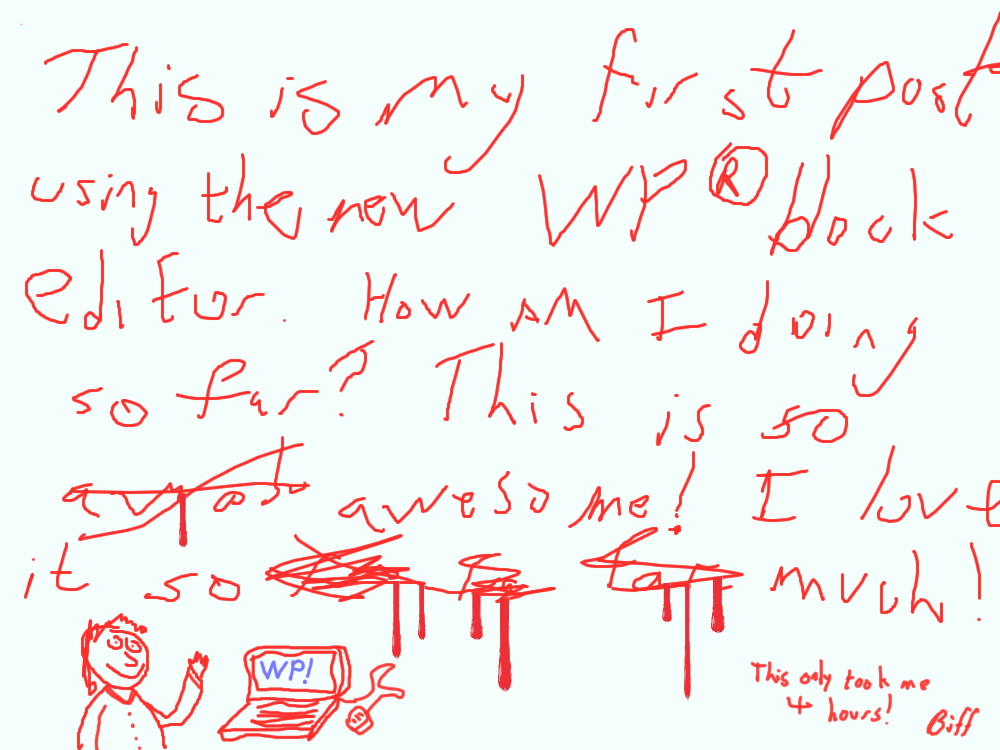 This is my first post
using the new WP® block
editor. How am I doing
so far? This is so
awesome! I love
it so far much!
WP!
This only took me
4 hours!
Biff